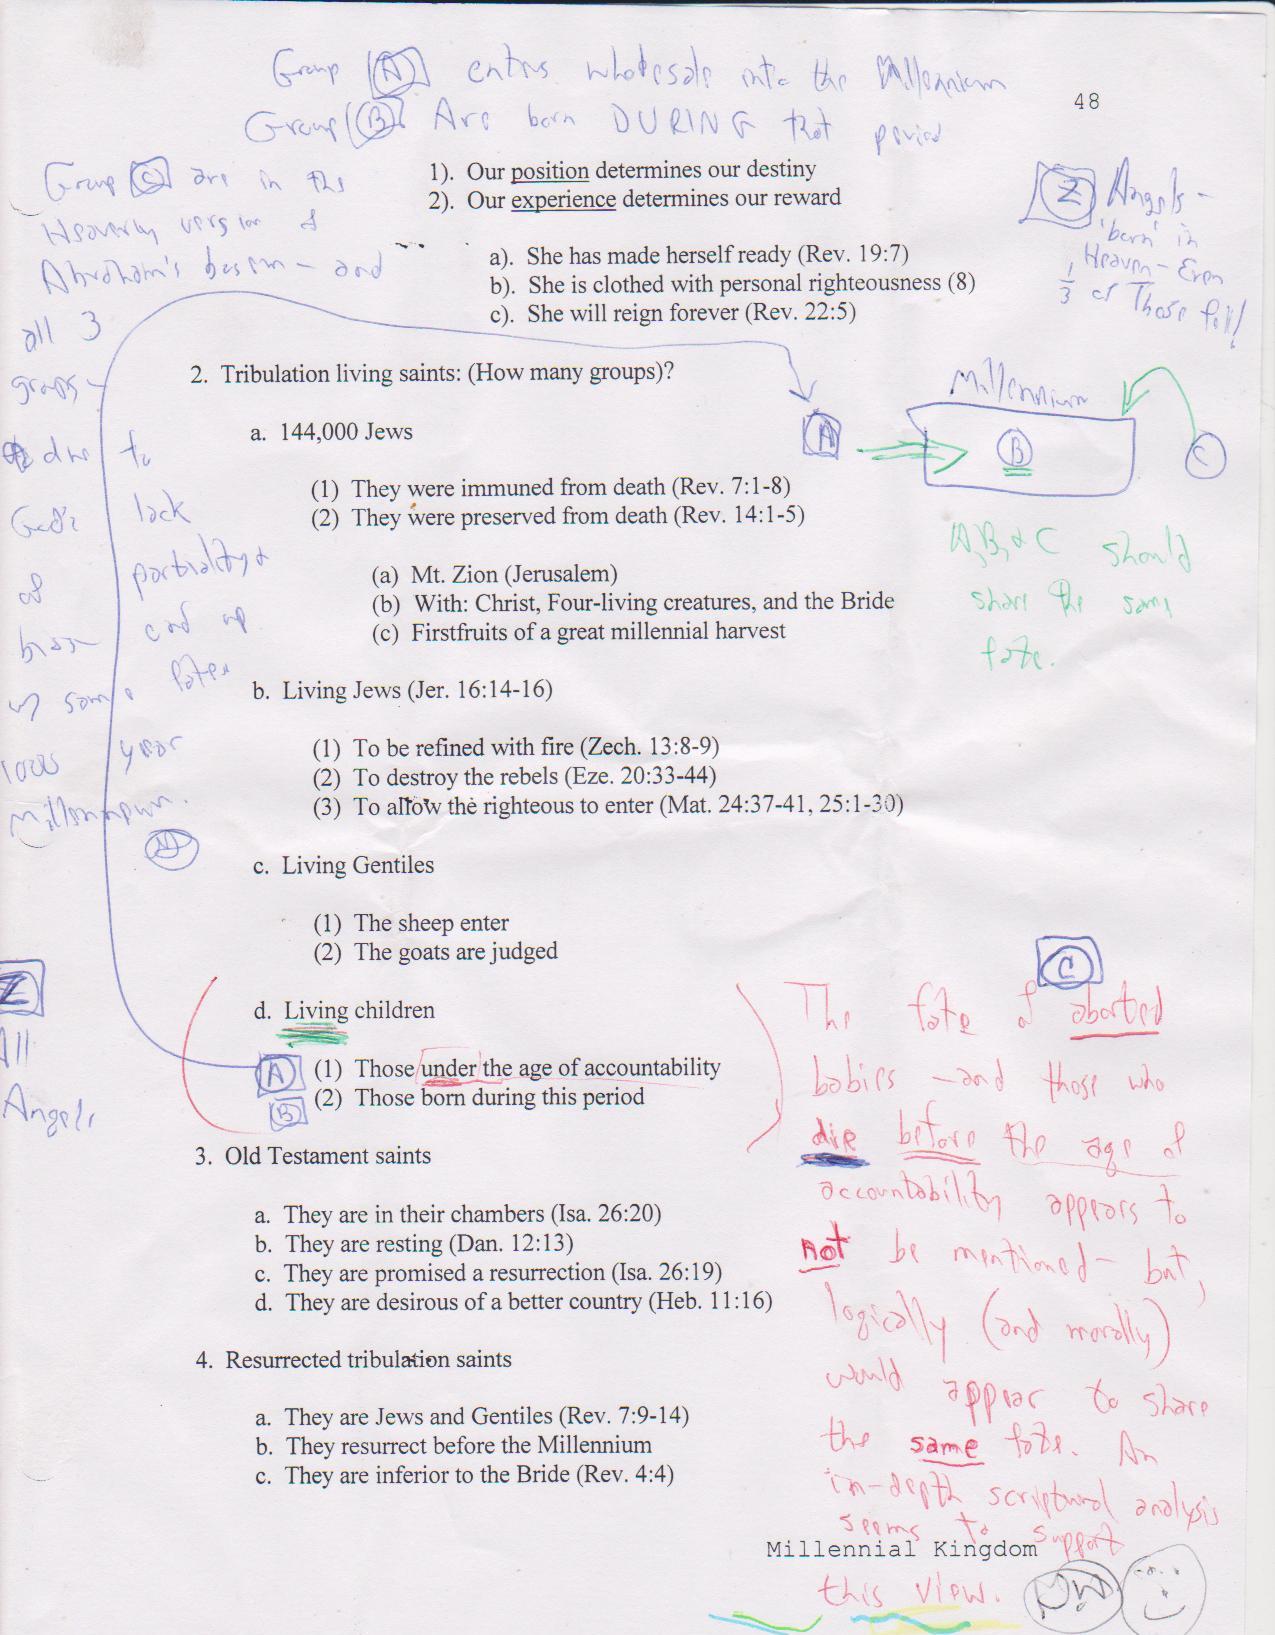 Group A enters wholesale into the Millennium
Group B Are born DURING that period
48
Group C are in the
Heavenly version of
Abraham's bosom - and
all 3
groups -
due to
God's lack
of partiality
end up
w/ same fates
1000 year
Millennium.
Z
All
Angels
1). Our position determines our destiny
2). Our experience determines our reward
a). She has made herself ready (Rev. 19:7)
b). She is clothed with personal righteousness (8)
c). She will reign forever (Rev. 22:5)
Z Angels -
'born' in
Heaven - Even
1/3 of Those fell!
2. Tribulation living saints: (How many groups)?
a. 144,000 Jews
(1) They were immuned from death (Rev. 7:1-8)
(2) They were preserved from death (Rev. 14:1-5)
(a) Mt. Zion (Jerusalem)
(b) With: Christ, Four-living creatures, and the Bride
(c) Firstfruits of a great millennial harvest
Millennium
A
B
C
A, B, & C should
share the same
fate.
b. Living Jews (Jer. 16:14-16)
(1) To be refined with fire (Zech. 13:8-9)
(2) To destroy the rebels (Eze. 20:33-44)
(3) To allow the righteous to enter (Mat. 24:37-41, 25:1-30)
c. Living Gentiles
(1) The sheep enter
(2) The goats are judged
d. Living children
A (1) Those under the age of accountability
B (2) Those born during this period
3. Old Testament saints
a. They are in their chambers (Isa. 26:20)
b. They are resting (Dan. 12:13)
c. They are promised a resurrection (Isa. 26:19)
d. They are desirous of a better country (Heb. 11:16)
4. Resurrected tribulation saints
a. They are Jews and Gentiles (Rev. 7:9-14)
b. They resurrect before the Millennium
c. They are inferior to the Bride (Rev. 4:4)
C
The fate of aborted
babies - and those who
die before the age of
accountability appears to
not be mentioned - but,
logically (and morally)
would appear to share
the same fate. An
in-depth scriptural analysis
seems to support
this view.
Millennial Kingdom